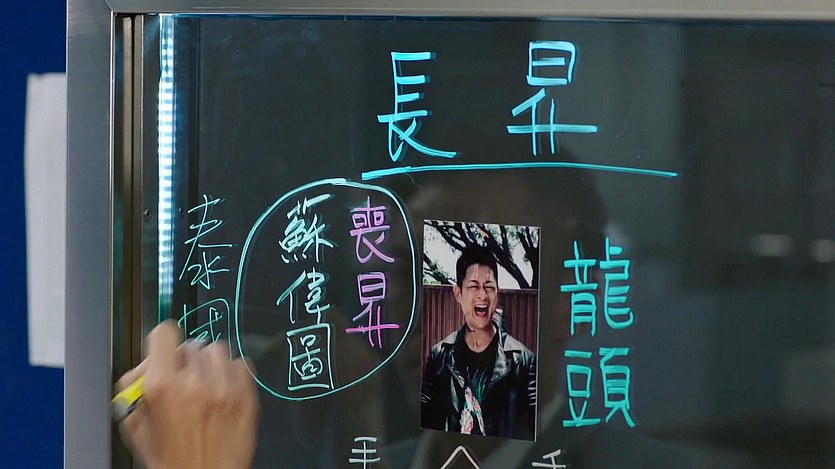 長昇
龍頭
喪昇
蘇偉圖
泰國
手